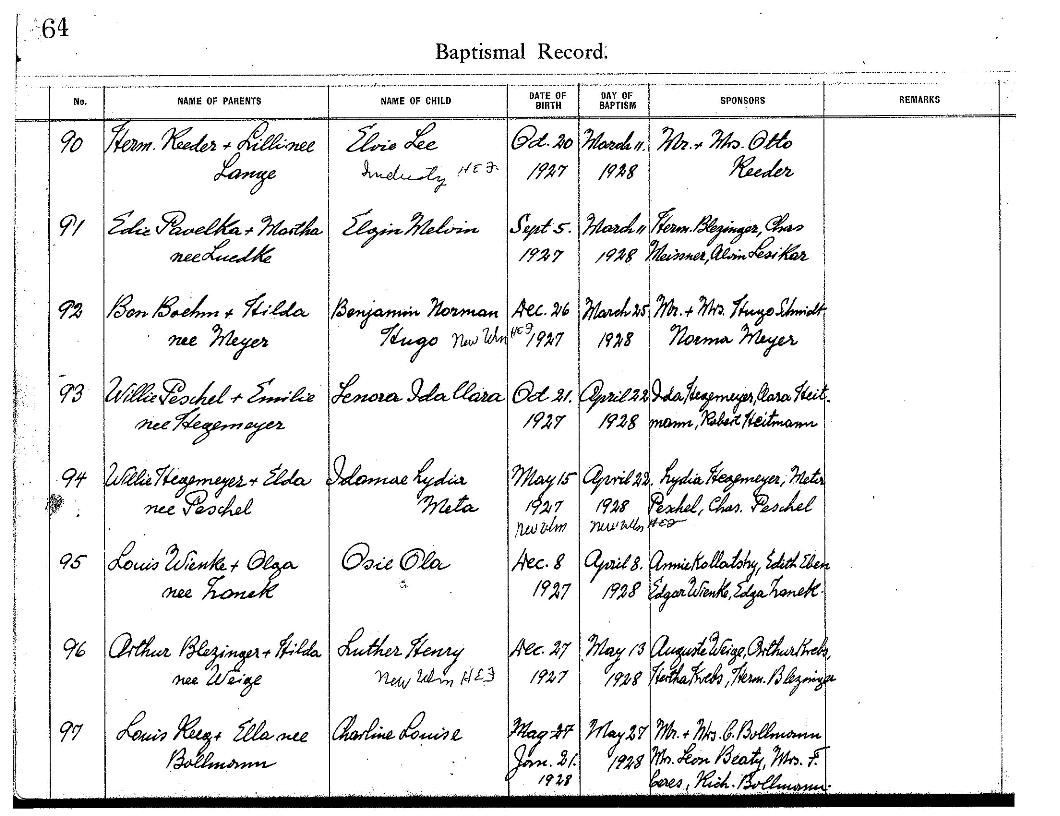 64
Baptismal Record.
No. NAME OF PARENTS NAME OF CHILD DATE OF BIRTH DAY OF BAPTISM SPONSORS REMARKS
90 Herm. Reeder + Lilli nee Elvie Lee Oct. 20 March 11. Mr. + Mrs. Otto
Lange Industry H E F. 1927 1928 Reeder
91 Edie Pavelka + Martha Elgin Melvin Sept 5. March 11 Herm. Blezinger, Chas
nee Luedke 1927 1928 Meisner, Alvin Lesikar
92 Ben Boehm + Hilda Benjamin Norman Dec. 26 March 25 Mr. + Mrs. Hugo Schmidt
nee Meyer Hugo New Ulm HEF 1927 1928 Norma Meyer
93 Willie Peschel + Emilie Lenora Ida Clara Oct 21. April 22 Ida Hegemeyer, Clara Heit-
nee Hegemeyer 1927 1928 mann, Robert Heitmann
94 Willie Hegemeyer + Elda Idamae Lydia May 15 April 22. Lydia Hegemeyer, Meta
nee Peschel Meta 1927 1928 Peschel, Chas. Peschel
New Ulm New Ulm HEF
95 Louis Wienke + Olga Osie Ola Dec. 8 April 8. Annie Kollatshy, Edith Eben
nee Zanek 1927 1928 Edgar Wienke, Edga Zanek
96 Arthur Blezinger + Hilda Luther Henry Dec. 27 May 13 Auguste Weige, Arthur Krebs,
nee Weige New Ulm HEF 1927 1928 Hertha Krebs, Herm. Blezinger
97 Louis + Ella nee Charline Louise May 27 May 27 Mr. + Mrs. C. Bollmann
Bollmann Jan. 21. 1928 Mrs. Leon Beaty, Mrs. F.
1928 Ceres, Rich. Bollmann.